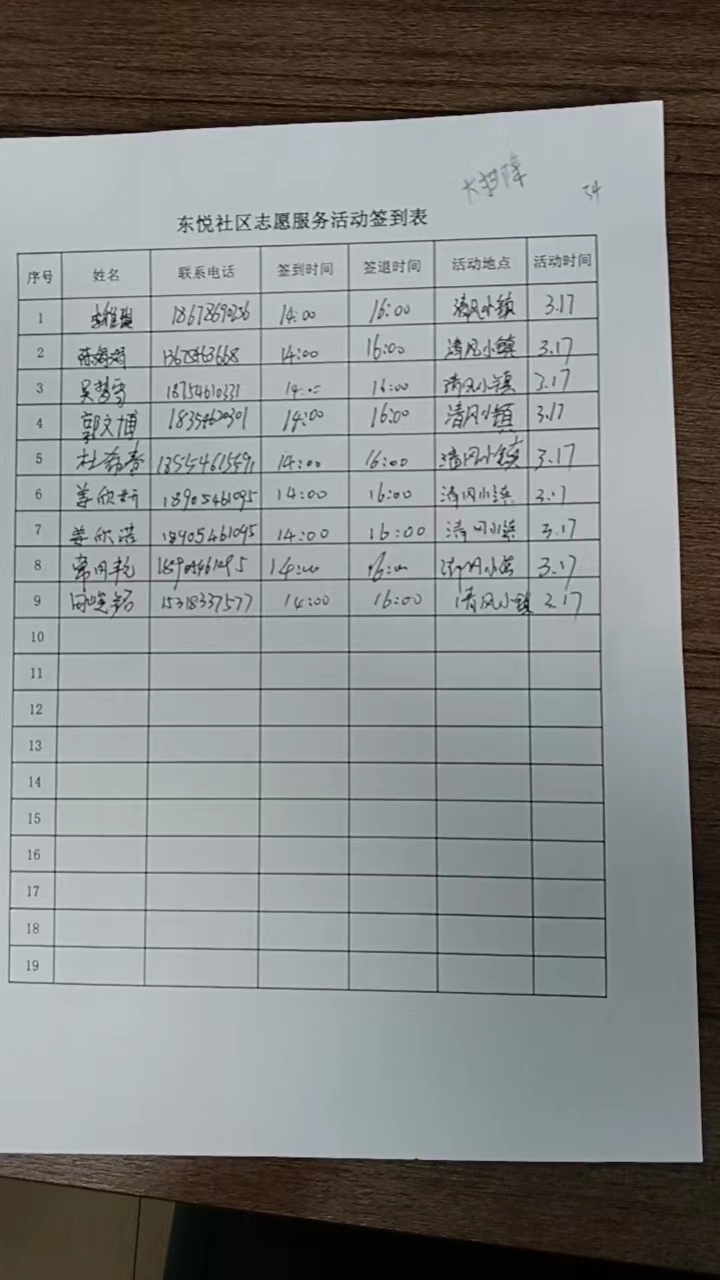 34
东悦社区志愿服务活动签到表
序号 姓名 联系电话 签到时间 签退时间 活动地点 活动时间
1 14:00 16:00 清风小镇 3.17
2 14:00 16:00 清风小镇 3.17
3 吴梦雪 18754610331 14:00 16:00 清风小镇 3.17
4 郭文博 14:00 16:00 清风小镇 3.17
5 14:00 16:00 清风小镇 3.17
6 姜欣妍 18905461095 14:00 16:00 清风小镇 3.17
7 姜欣诺 18905461095 14:00 16:00 清风小镇 3.17
8 14:00 16:00 清风小镇 3.17
9 15318337577 14:00 16:00 清风小镇 3.17
10
11
12
13
14
15
16
17
18
19